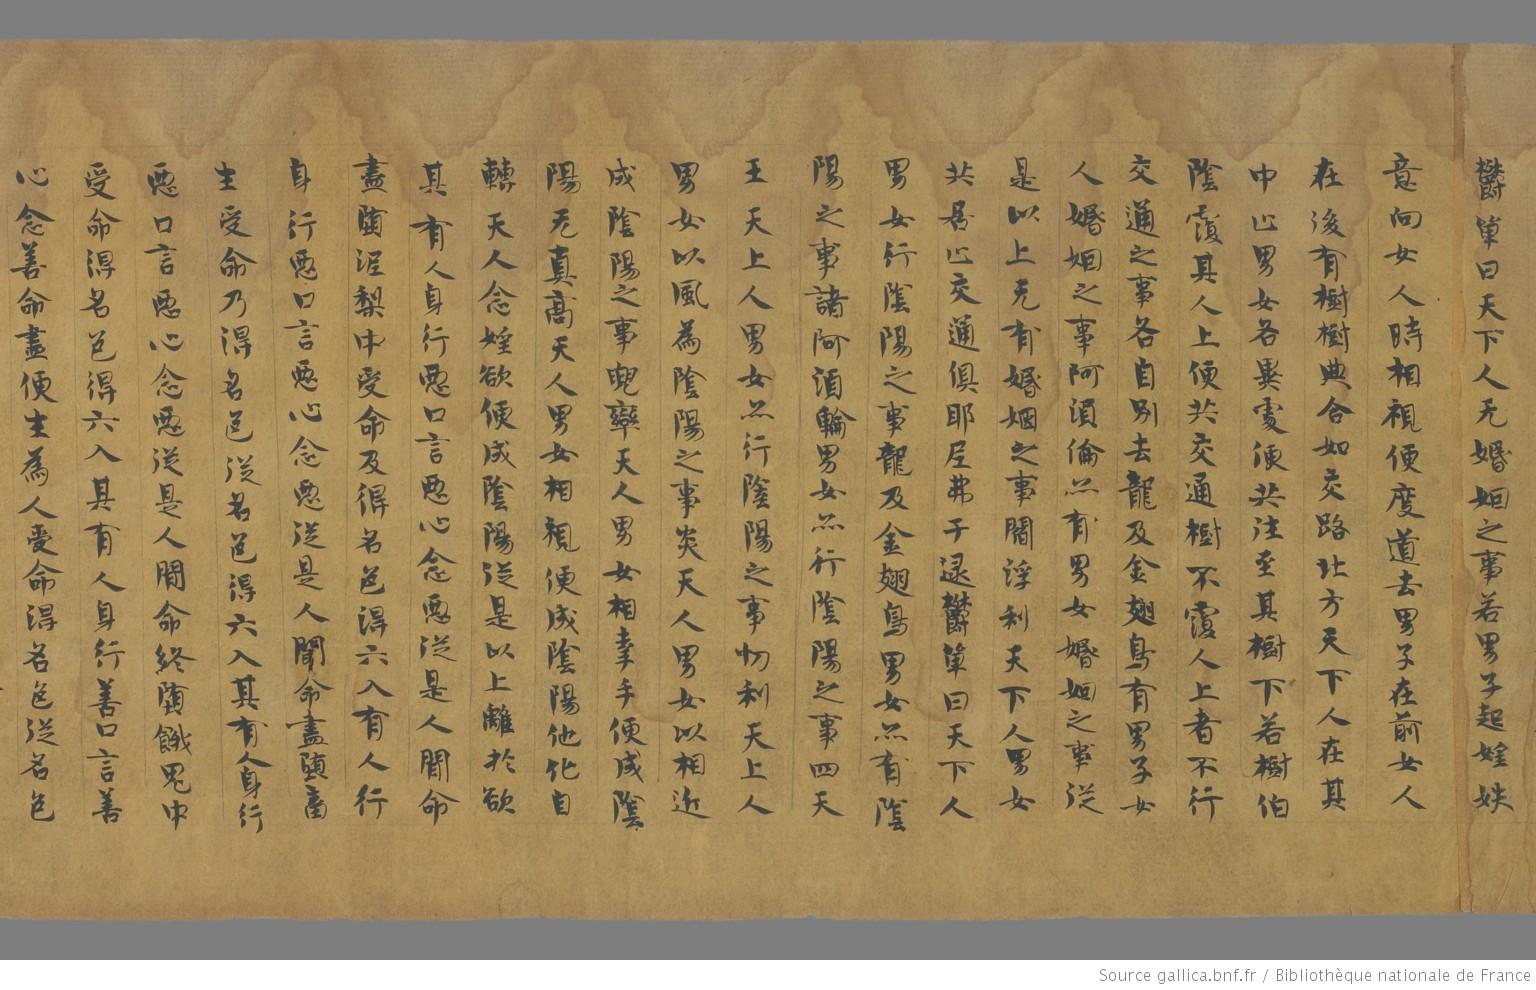 欝單曰天下人无婚姻之事若男子起婬妷
意向女人時相視便度道去男子在前女人
在後有樹樹典合如交路北方天下人在其
中止男女各異處便共注至其樹下若樹伯
陰覆其人上便共交通樹不覆人上者不行
交通之事各自別去龍及金翅鳥有男子女
人婚姻之事阿湏倫亦有男女婚姻之事從
是以上无有婚姻之事閻浮利天下人男女
共居止交通俱耶尼弗于逮欝單曰天下人
男女行陰陽之事龍及金翅鳥男女亦有陰
陽之事諸阿湏輪男女亦行陰陽之事四天
王天上人男女亦行陰陽之事忉利天上人
男女以風為陰陽之事炎天人男女以相近
成陰陽之事兜率天人男女相牽手便成陰
陽无真高天人男女相視便成陰陽他化自
轉天人念婬欲便成陰陽從是以上離於欲
其有人身行惡口言惡心念惡從是人間命
盡墮泥犁中受命及得名色得六入有人行
身行惡口言惡心念惡從是人間命盡墮畜
生受命乃得名色從名色得六入其有人身行
惡口言惡心念惡從是人間命終墮餓鬼中
受命得名色得六入其有人身行善口言善
心念善命盡便生為人受命得名色從名色
Source gallica.bnf.fr / Bibliothèque nationale de France